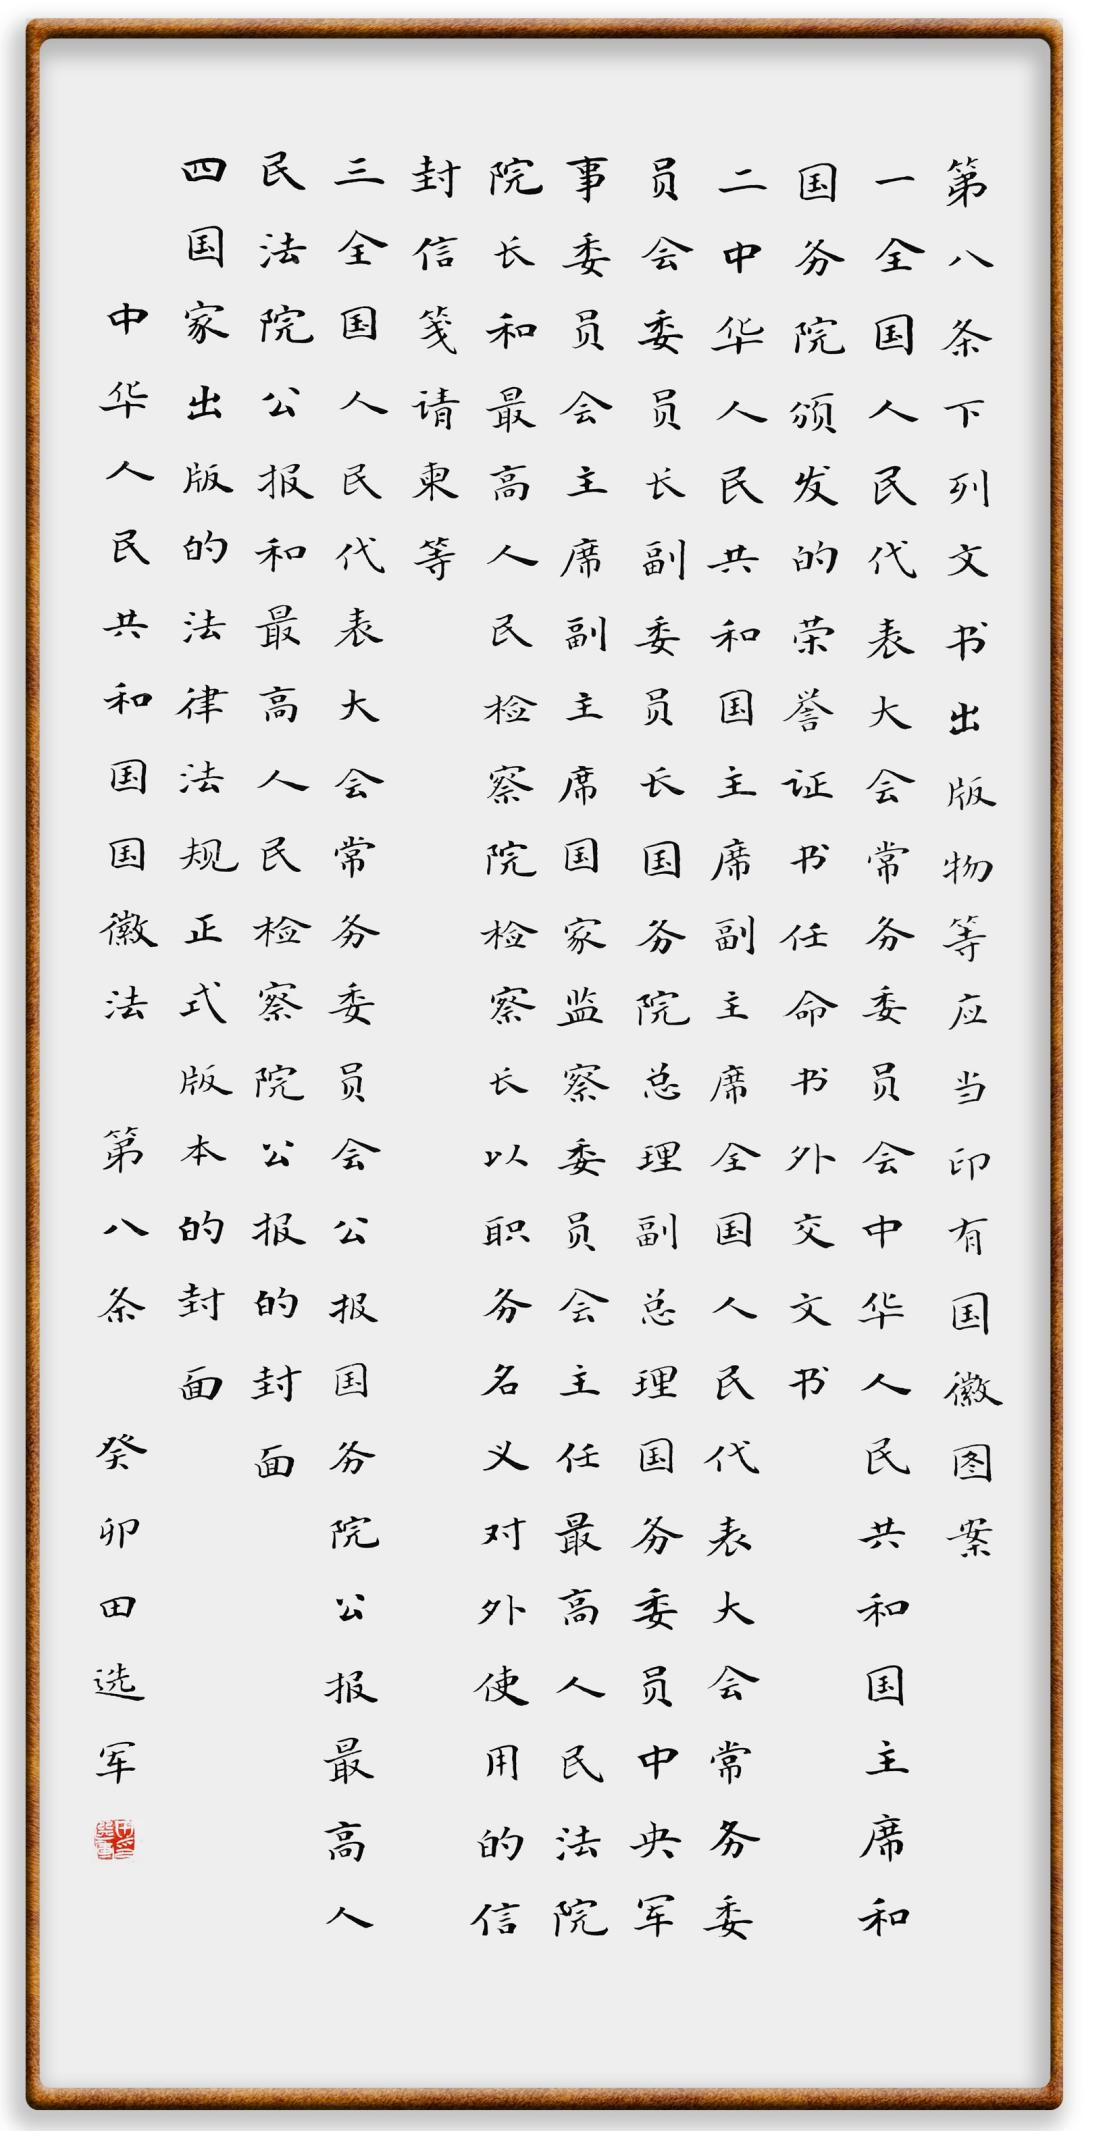 第八条下列文书出版物等应当印有国徽图案
一全国人民代表大会常务委员会中华人民共和国主席和
国务院颁发的荣誉证书任命书外交文书
二中华人民共和国主席副主席全国人民代表大会常务委
员会委员长副委员长国务院总理副总理国务委员中央军
事委员会主席副主席国家监察委员会主任最高人民法院
院长和最高人民检察院检察长以职务名义对外使用的信
封信笺请柬等
三全国人民代表大会常务委员会公报国务院公报最高人
民法院公报和最高人民检察院公报的封面
四国家出版的法律法规正式版本的封面
中华人民共和国国徽法 第八条 癸卯田选军